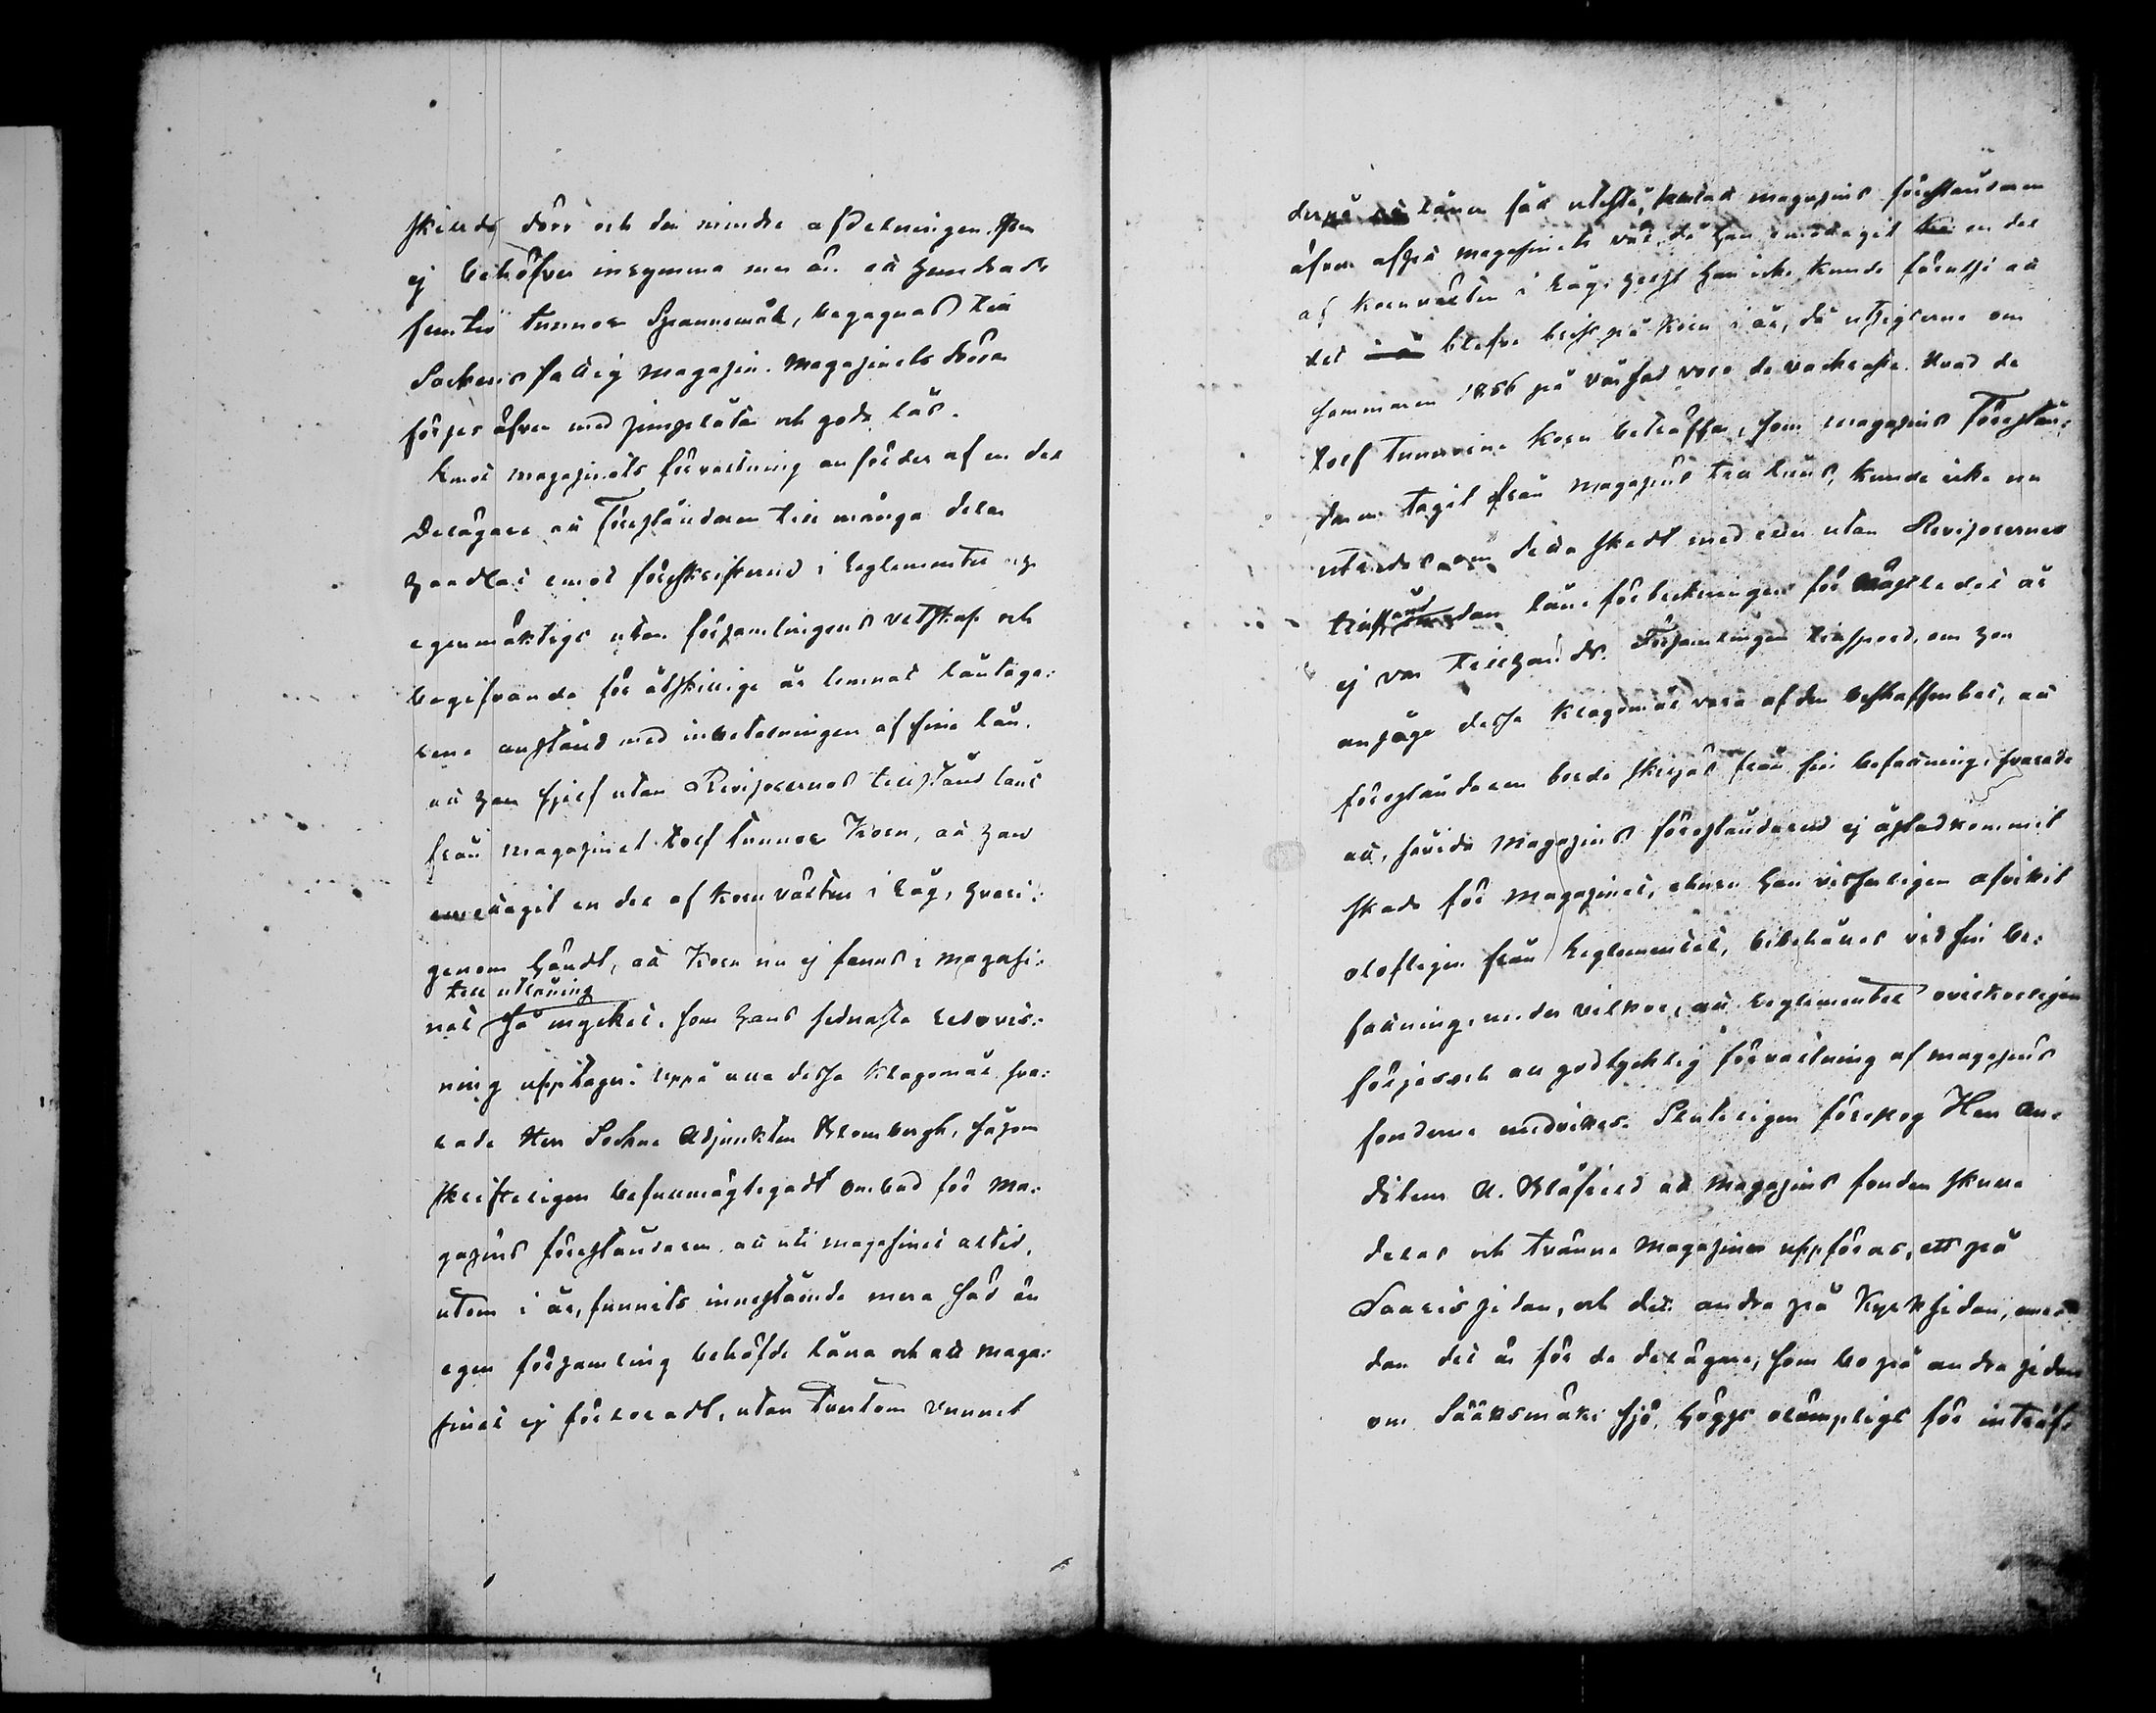 skilda dörr och den mindre afdelningen, som
ej behöfver inrymma mer än ett hundrade
femtio tunnor Spannemål, begagnas till
Sockens fattig magasin. Magasinets dörrar
förses äfven med jernplåtar och goda lås.
Emot magasinets förvaltning anfördes af en del
Delägare att Föreståndaren till många delar
handlat emot föreskrifterna i Reglementet och
egenmäktigt utan församlingens vetskap och
begifvande för åtskillige år lemnat låntaga:
rene anstånd med inbetalningen af sine lån.
att han sjelf utan Revisorernas tillstånd lånt
från magasinet tolf tunnor Korn, att han
emottagit en del af Kornräntan i Råg, hvari:
genom händt, att Korn nu ej fanns i magasi:
till utlåning
net så mycket, som hans sednaste redovis:
ning upptager. Uppå alla dessa klagomål sva:
rade Herr Sockne Adjunkten Blombergh, såsom
skrifteligen befullmägtigadt ombud för Ma:
gasins föreståndaren, att uti magasinet alltid,
utom i år, funnits innestående mera säd än
egen församling behöfde låna och att maga:
sinet ej förloradt, utan tvertom vunnit
derpå lånen fått utestå, hvilket magasins föreståndaren
äfven afsett magasinets väl, då han emottagit en del
af kornräntan i Råg, helst han icke kunde förutse att
det blefve brist på Korn i år, då utsigterne om
sommaren 1856 på vårsäd voro de vackraste. Hvad de
tolf tunnorne korn beträffar, som magasins Förestån:
daren tagit från Magasins till låns, kunde icke nu
utredas, om detta skedt med eller utan Revisorernes
tillstånd, då låne förteckningen för det år
ej var tillhands. Församlingen tillspord, om hon
ansåge dessa klagomål vara af den beskaffenhet, att
föreståndaren borde skiljas från sin befattning, svarade
att, såvida Magasins föreståndaren ej åstadkommit
skada för magasinet, ehuru han visserligen afvikit
oloflligen från Reglementet, bibehålles vid sin be:
fattning, under vilkor, att reglementet ovilkorligen
följes och all godtycklig förvaltning af magasins
fonderne undvikes. Slutligen föreslog Herr Au:
ditem A. Blåfield att Magasins fonden skulle
delas och tvänne Magasiner uppföras, ett på
Saarissidan, och det andra på Kyrksidan, eme:
dan det är för de delägare, som bo på andra sidan
om Sääksmäki sjö, högst olämpligt för inträf: